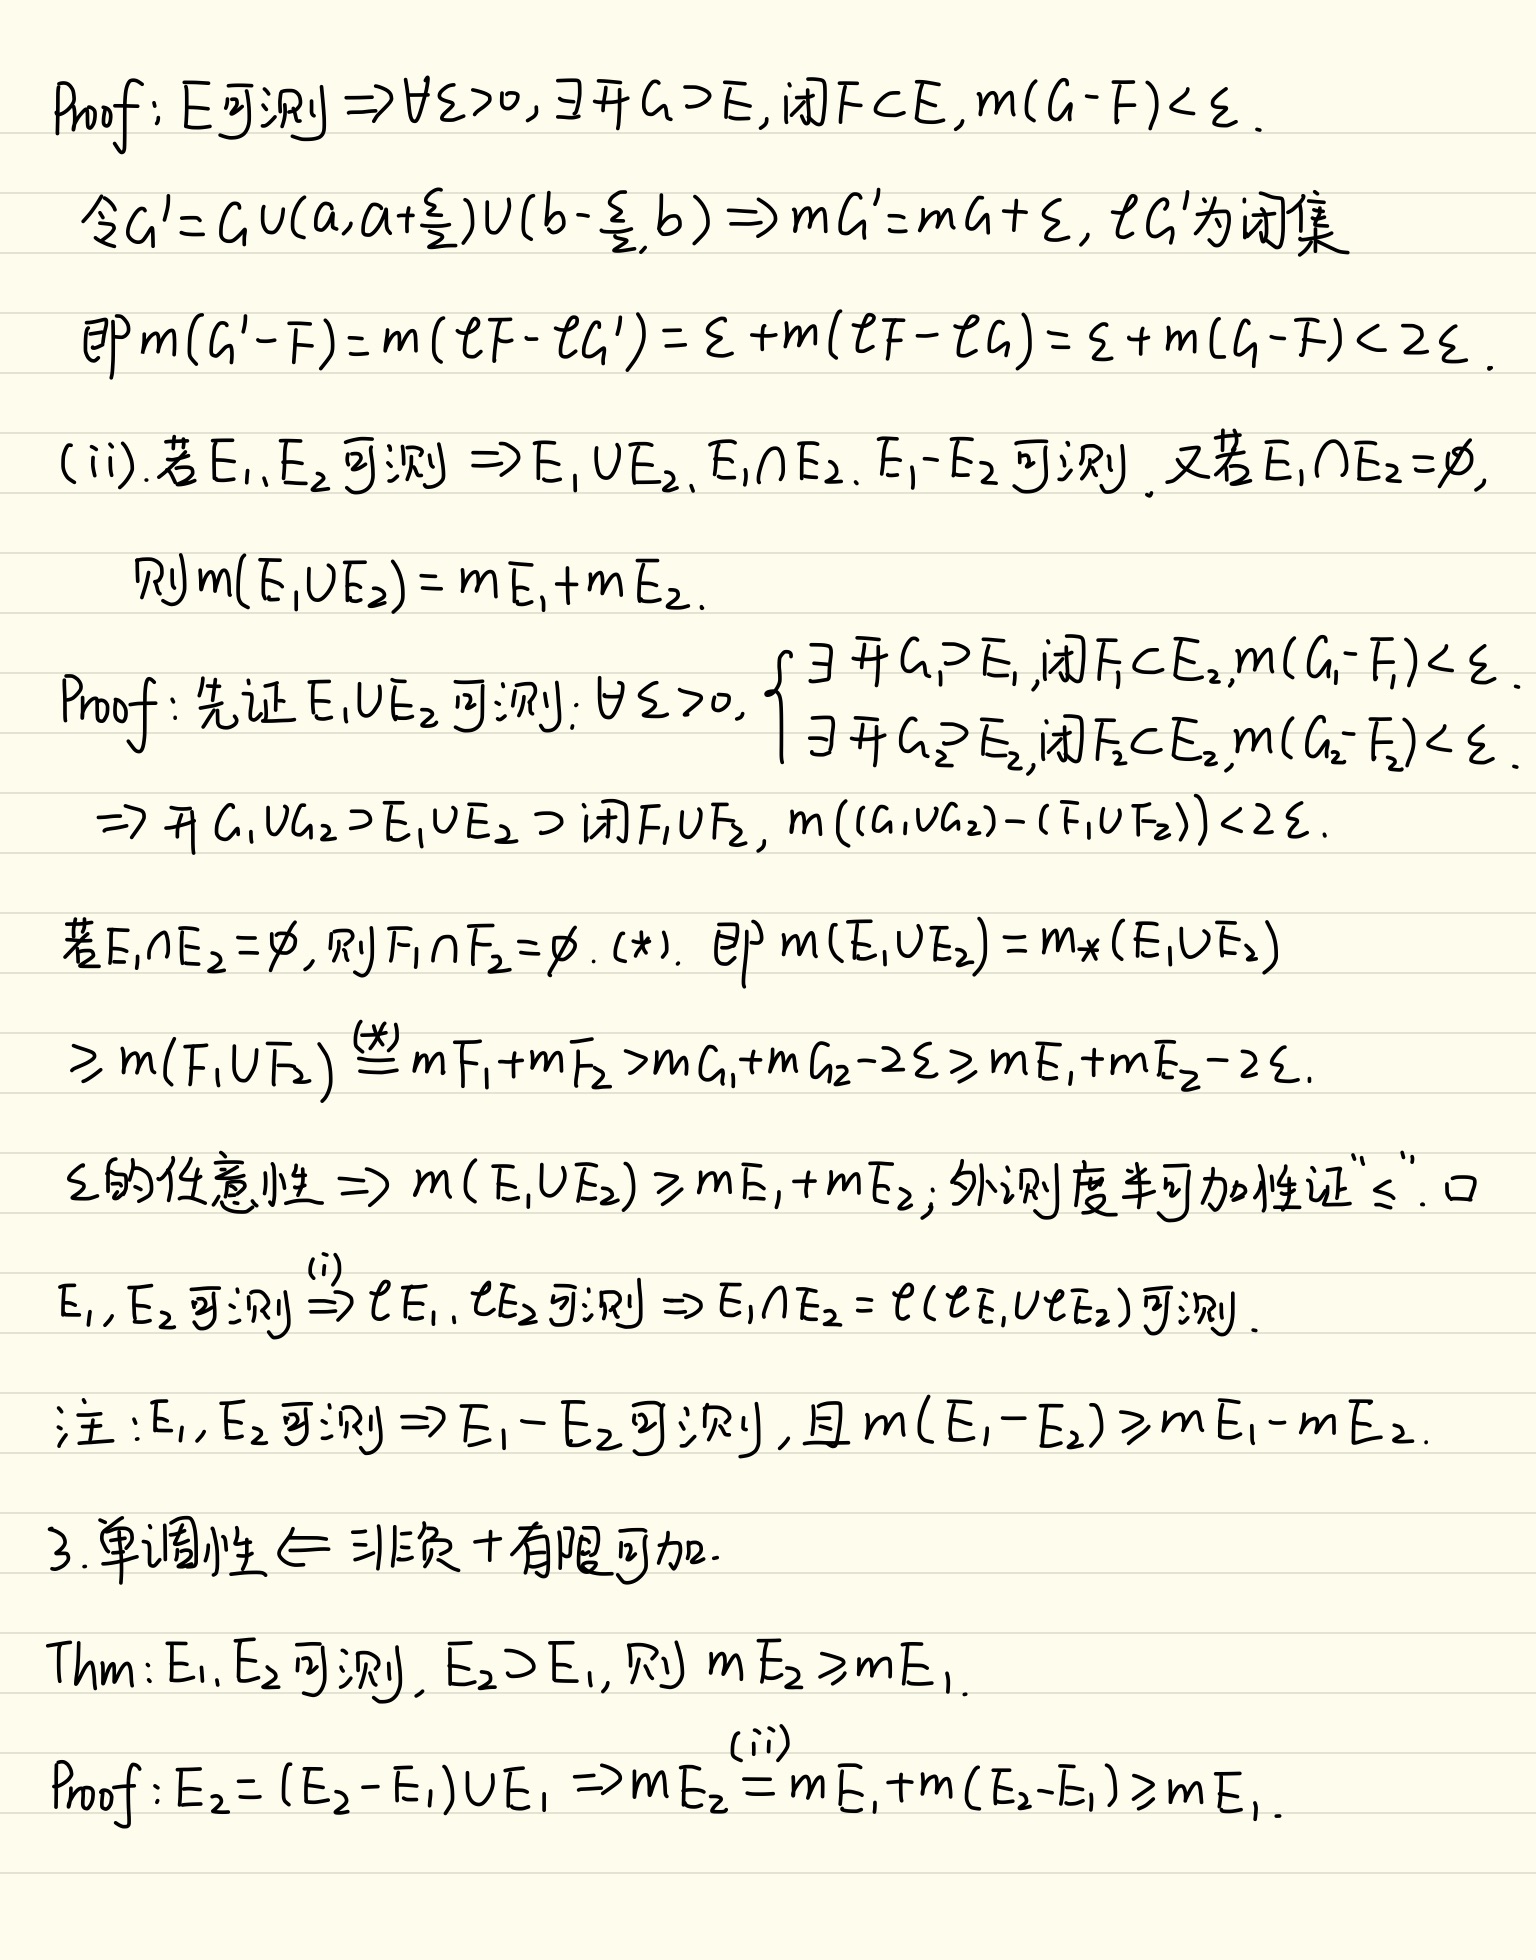 Proof: E可测 ⇒ ∀ε>0, ∃开G⊃E, 闭F⊂E, m(G-F)<ε.
令G'=G∪(a,a+ε/2)∪(b-ε/2,b) ⇒ mG'=mG+ε, ℓG'为闭集
即m(G'-F)=m(ℓF-ℓG')=ε+m(ℓF-ℓG)=ε+m(G-F)<2ε.
(ii).若E₁、E₂可测 ⇒ E₁∪E₂、E₁∩E₂、E₁-E₂可测. 又若E₁∩E₂=∅,
则m(E₁∪E₂)=mE₁+mE₂.
Proof: 先证E₁∪E₂可测: ∀ε>0, { ∃开G₁⊃E₁,闭F₁⊂E₂,m(G₁-F₁)<ε.
∃开G₂⊃E₂,闭F₂⊂E₂,m(G₂-F₂)<ε.
⇒ 开G₁∪G₂⊃E₁∪E₂⊃闭F₁∪F₂, m((G₁∪G₂)-(F₁∪F₂))<2ε.
若E₁∩E₂=∅,则F₁∩F₂=∅.(*). 即m(E₁∪E₂)=m*(E₁∪E₂)
≥m(F₁∪F₂) (*)= mF₁+mF₂>mG₁+mG₂-2ε≥mE₁+mE₂-2ε.
ε的任意性 ⇒ m(E₁∪E₂)≥mE₁+mE₂; 外测度半可加性证"≤". □
E₁, E₂可测 (i)⇒ ℓE₁、ℓE₂可测 ⇒ E₁∩E₂=ℓ(ℓE₁∪ℓE₂)可测.
注: E₁, E₂可测 ⇒ E₁-E₂可测, 且m(E₁-E₂)≥mE₁-mE₂.
3.单调性 ⇐ 非负+有限可加.
Thm: E₁、E₂可测, E₂⊃E₁, 则 mE₂≥mE₁.
Proof: E₂=(E₂-E₁)∪E₁ ⇒ mE₂ (ii)= mE₁+m(E₂-E₁)≥mE₁.